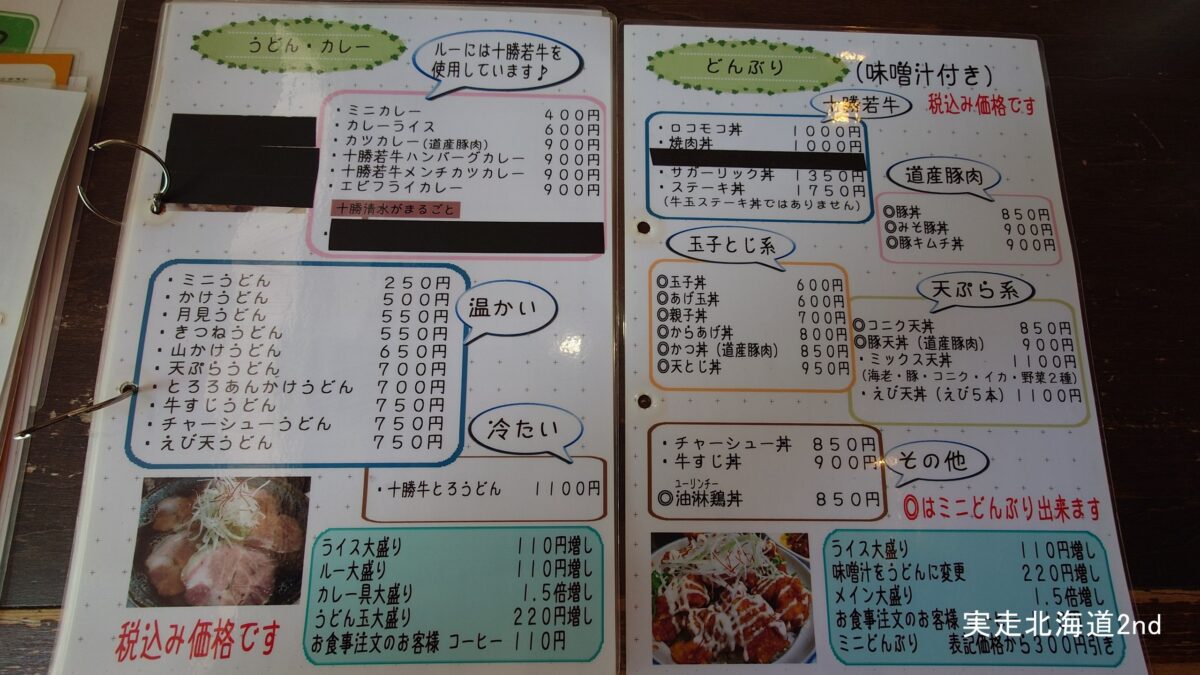 うどん・カレー
ルーには十勝若牛を
使用しています♪
・ミニカレー 400円
・カレーライス 600円
・カツカレー(道産豚肉) 900円
・十勝若牛ハンバーグカレー 900円
・十勝若牛メンチカツカレー 900円
・エビフライカレー 900円
十勝清水がまるごと
温かい
・ミニうどん 250円
・かけうどん 500円
・月見うどん 550円
・きつねうどん 550円
・山かけうどん 650円
・天ぷらうどん 700円
・とろろあんかけうどん 700円
・牛すじうどん 750円
・チャーシューうどん 750円
・えび天うどん 750円
冷たい
・十勝牛とろうどん 1100円
税込み価格です
ライス大盛り 110円増し
ルー大盛り 110円増し
カレー具大盛り 1.5倍増し
うどん玉大盛り 220円増し
お食事注文のお客様 コーヒー 110円
どんぶり
(味噌汁付き)
税込み価格です
十勝若牛
・ロコモコ丼 1000円
・焼肉丼 1000円
・サガーリック丼 1350円
・ステーキ丼 1750円
(牛玉ステーキ丼ではありません)
道産豚肉
◎豚丼 850円
◎みそ豚丼 900円
◎豚キムチ丼 900円
玉子とじ系
◎玉子丼 600円
◎あげ玉丼 600円
◎親子丼 700円
◎からあげ丼 800円
◎かつ丼(道産豚肉) 850円
◎天とじ丼 950円
天ぷら系
◎コニク天丼 850円
◎豚天丼(道産豚肉) 900円
・ミックス天丼 1100円
(海老・豚・コニク・イカ・野菜2種)
・えび天丼(えび5本) 1100円
その他
・チャーシュー丼 850円
・牛すじ丼 900円
ユーリンチー
◎油淋鶏丼 850円
◎はミニどんぶり出来ます
ライス大盛り 110円増し
味噌汁をうどんに変更 220円増し
メイン大盛り 1.5倍増し
お食事注文のお客様
ミニどんぶり 表記価格から300円引き
実走北海道2nd